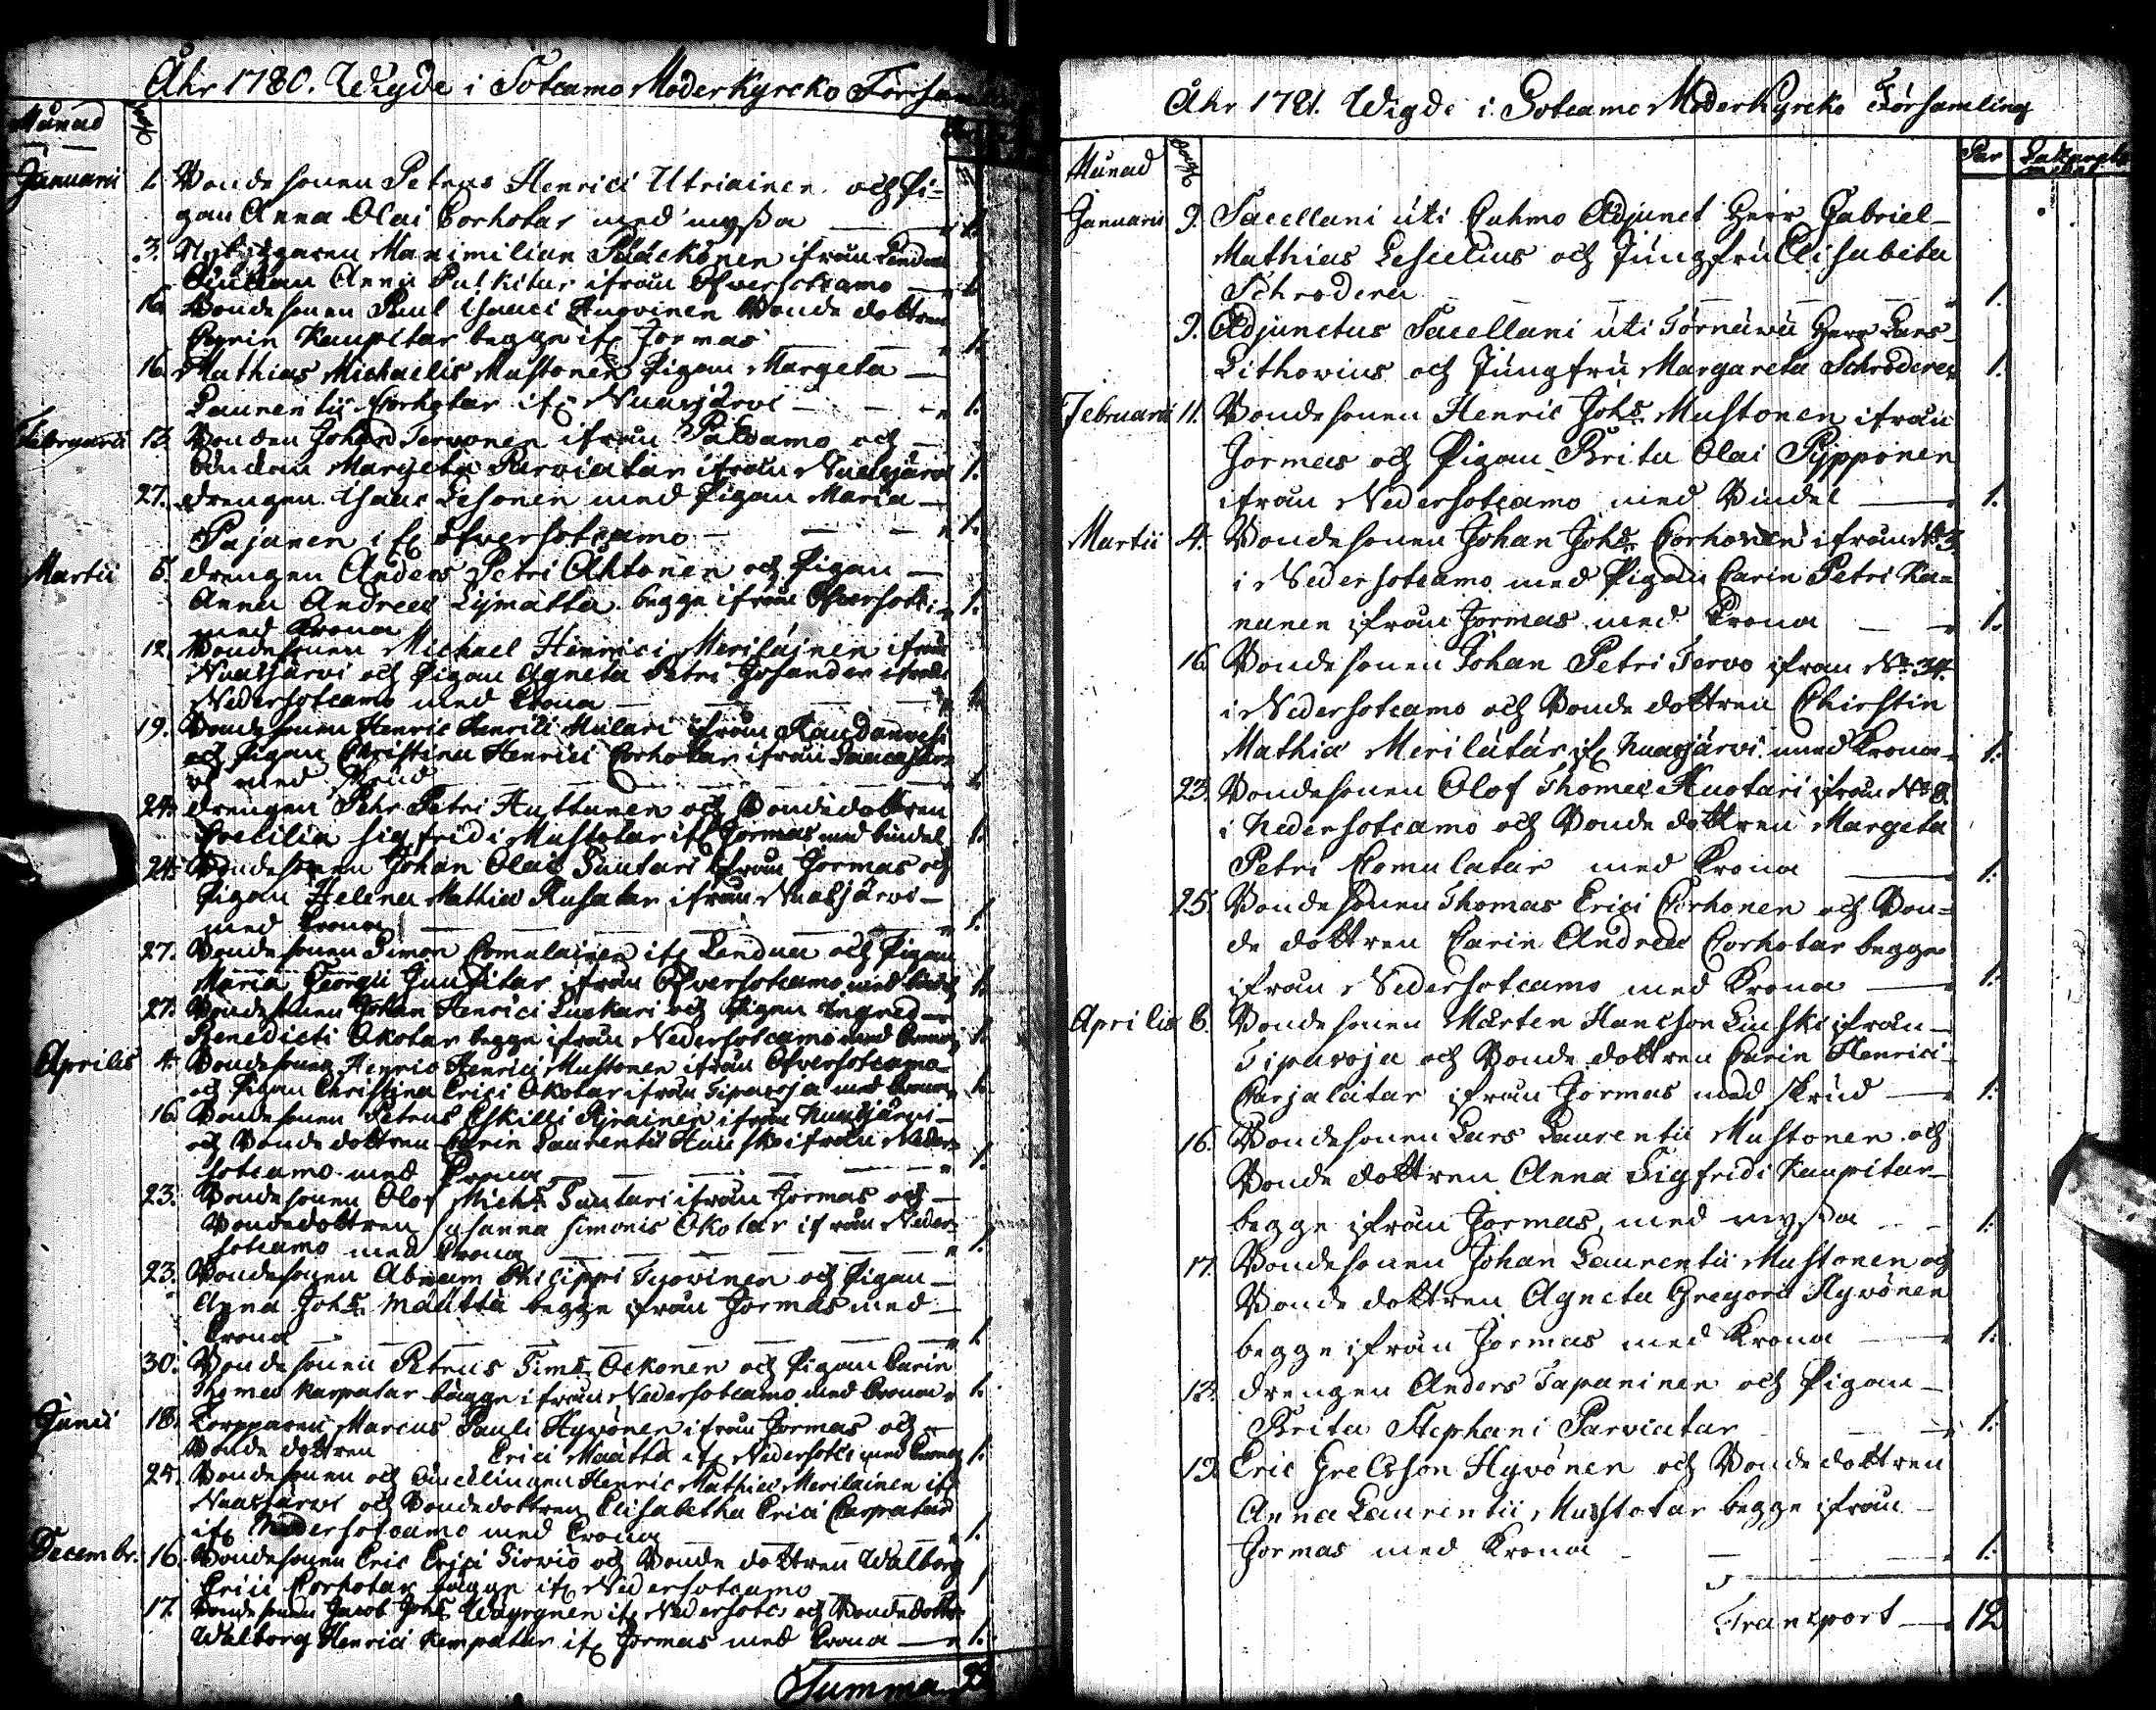 Åhr 1780. Wigde i Sotcamo Moderkyrcko Försam
Månad
Januarii 1. Bondesonen Petrus Henrici Utriainen och Pi-
gan Anna Olai Corhotar med myssa 1.
3. Nybyggaren Maximilian Pääckönen ifrån
Änckan Anna Pulkitar ifrån Öfversotcamo 1.
16. Bondesonen Paul Isaaci Huovinen Bonde dottren
Carin Kaupitar begge if: Jormas 1.
16. Mathias Michaelis Mustonen Pigan Margeta
Laurentii Corhotar if: Nuasjärvi 1.
Februarii 13. Bonden Johan Tervonen ifrån Paldamo och
änckan Margeta Parviatar ifrån Nuasjärvi 1.
27. drengen Isaac Lesonen med Pigan Maria
Pajanen if: Öfversotcamo 1.
Martii 5. drengen Anders Petri Ahtonen och Pigan
Anna Andreæ Lymatta begge ifrån Öfversotc: 1.
med Krona
12. Bondesonen Michael Henrici Meriläinen ifrån
Nuasjärvi och Pigan Agneta Petri Josander ifrån
Nedersotcamo med Crona 1.
19. Bondesonen Henric Henrici Mulari ifrån
och Pigan Christina Henrici Corhotar ifrån
vi med Skrud 1.
24. drengen Pehr Petri Huttunen och Bondedottren
Coecilia Sigfridi Mustotar if: Jormas med bindel 1.
24. Bondesonen Johan Olai Santari ifrån Jormas och
Pigan Helena Mathiæ Kusatar ifrån Nuasjärvi
med Crona 1.
27. Bondesonen Simon Comulainen if: Lendua och Pigan
Maria Georgii ifrån Öfversotcamo med bindel 1.
27. Bondesonen Johan Henrici Luckari och Pigan Ingred
Benedicti Okotar begge ifrån Nedersotcamo med Crona 1.
Aprilis 4. Bondesonen Henric Henrici Mustonen ifrån Öfversotcamo
och Pigan Christina Erici Okotar ifrån Tipasoja med Crona 1.
16. Bondesonen Petrus Eskilli Pyrainen ifrån Nuasjärvi
och Bonde dottren Carin Laurentii ifrån Neder
sotcamo med Crona 1.
23. Bondesonen Olof Mich:s Santari ifrån Jormas och
Bondedottren Susanna Simonis Okotar ifrån Neder
sotcamo med Crona 1.
23. Bondesonen Abram Philippi Tuovinen och Pigan
Anna Joh:s Määttä begge ifrån Jormas med
Crona 1.
30. Bondesonen Petrus Sim:s Ockonen och Pigan Carin
Thomæ Karpatar bägge ifrån Nedersotcamo med Crona 1.
Junii 18. Torpparen Marcus Pauli Hyvönen ifrån Jormas och
Bonde dottren Erici Määttä if: Nedersotc: med Crona 1.
25. Bondesonen och Enckllingen Henric Mathiæ Merilainen if:
Nuasjärvi och Bondedottren Elisabetha Erici Carpatar
if: Nedersotcamo med Crona 1.
Decembr. 16. Bondesonen Eric Erici Siovio och Bonde dottren Walborg
Erici Corhotar bägge if: Nedersotcamo 1
17. Bondesonen Jacob Joh:s Wäyrynen if: Nedersotc: och Bondedottr:
Walborg Henrici Kempatar if: Jormas med Crona 1.
Summa
Åhr 1781. Wigde i Sotcamo Moderkyrcko Församling
Månad Par
Januarii 9. Sacellani uti Cuhmo Adjunct Herr Gabriel
Mathias Cesculius och Jungfru Elisabeta
Schroderus 1.
9. Adjunctus Sacellani uti Törnävä Herr Lars
Lithovius och Jungfru Margareta Schroderus 1.
Februarii 11. Bondesonen Henric Joh:s Mustonen ifrån
Jormas och Pigan Brita Olai Pypponen
ifrån Nedersotcamo med Bindel 1.
Martii 4. Bondesonen Johan Joh:s Corhonen ifrån N:o 3
i Nedersotcamo med Pigan Carin Petri Ka-
nanen ifrån Jormas med Krona 1.
16. Bondesonen Johan Petri Tervo ifrån N:o 34.
i Nedersotcamo och Bonde dottren Chirstin
Mathiæ Merilätär if: Nuasjärvi med Krona 1.
23. Bondesonen Olof Thomæ Huotari ifrån N:o 8.
i Nedersotcamo och Bonde dottren Margeta
Petri Comulatar med Krona 1.
25. Bondesonen Thomas Erici Corhonen och Bon-
de dottren Carin Andreæ Corhotar begge
ifrån Nedersotcamo med Krona 1.
Aprilis 6. Bondesonen Mårten Hansson Linski ifrån
Tipasoja och Bonde dottren Carin Henrici
Carjalatar ifrån Jormas med skrud 1.
16. Bondesonen Lars Laurentii Mustonen och
Bonde dottren Anna Sigfridi Kaupitar
begge ifrån Jormas, med myssa 1.
17. Bondesonen Johan Laurentii Mustonen och
Bonde dottren Agneta Gregorii Hyvönen
begge ifrån Jormas med Krona 1.
18. drengen Anders Tapaninen och Pigan
Brita Stephani Parviatar 1.
19. Eric Grelsson Hyvönen och Bondedottren
Anna Laurentii Mustotar begge ifrån
Jormas med Krona 1.
Transport 12